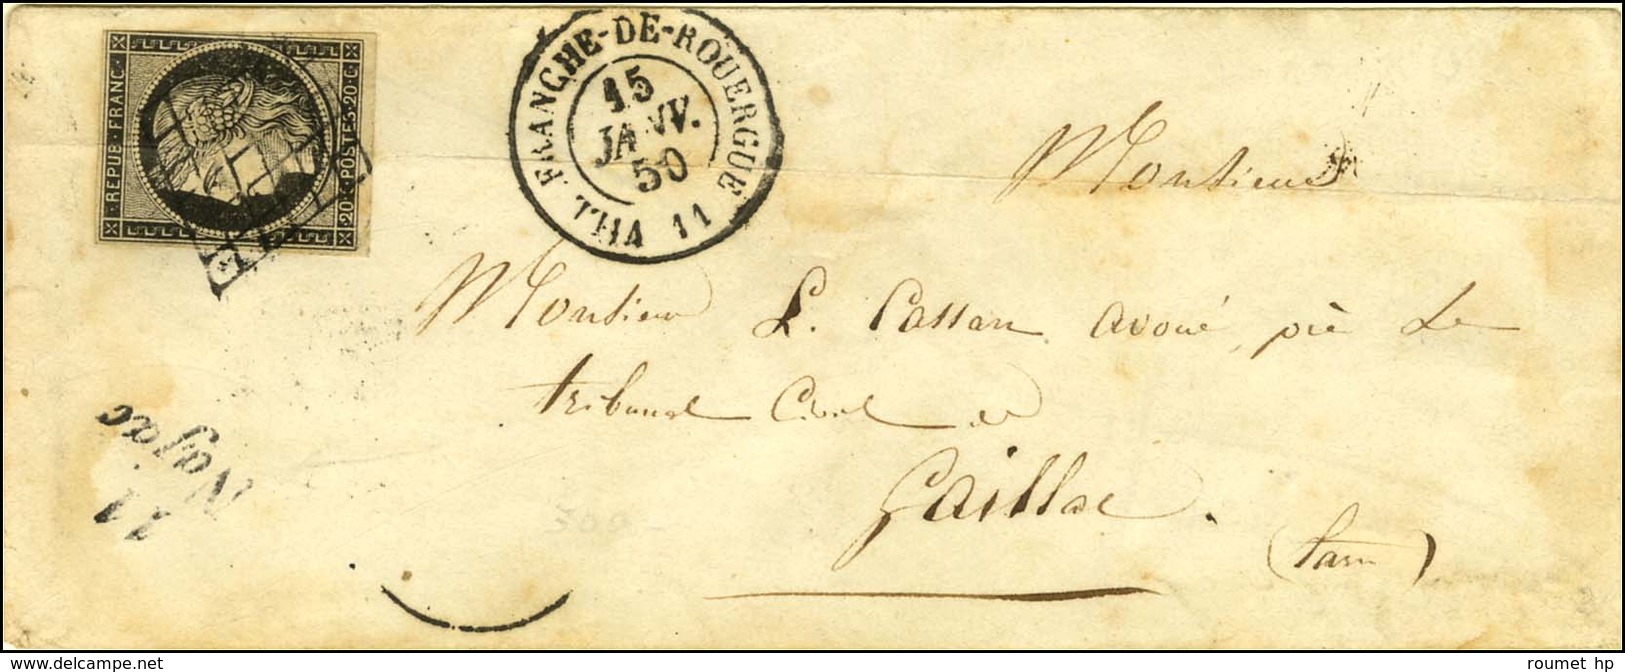 REPUB·FRANC·
20·C·POSTES·20·C·
VILLEFRANCHE-DE-ROUERGUE 11
15
JANV.
50
Monsieur
Monsieur L. Cassan avoué, près le
tribunal Civil de
Gaillac.
(Tarn)
11
Najac
300
delcampe.net
roumet hp